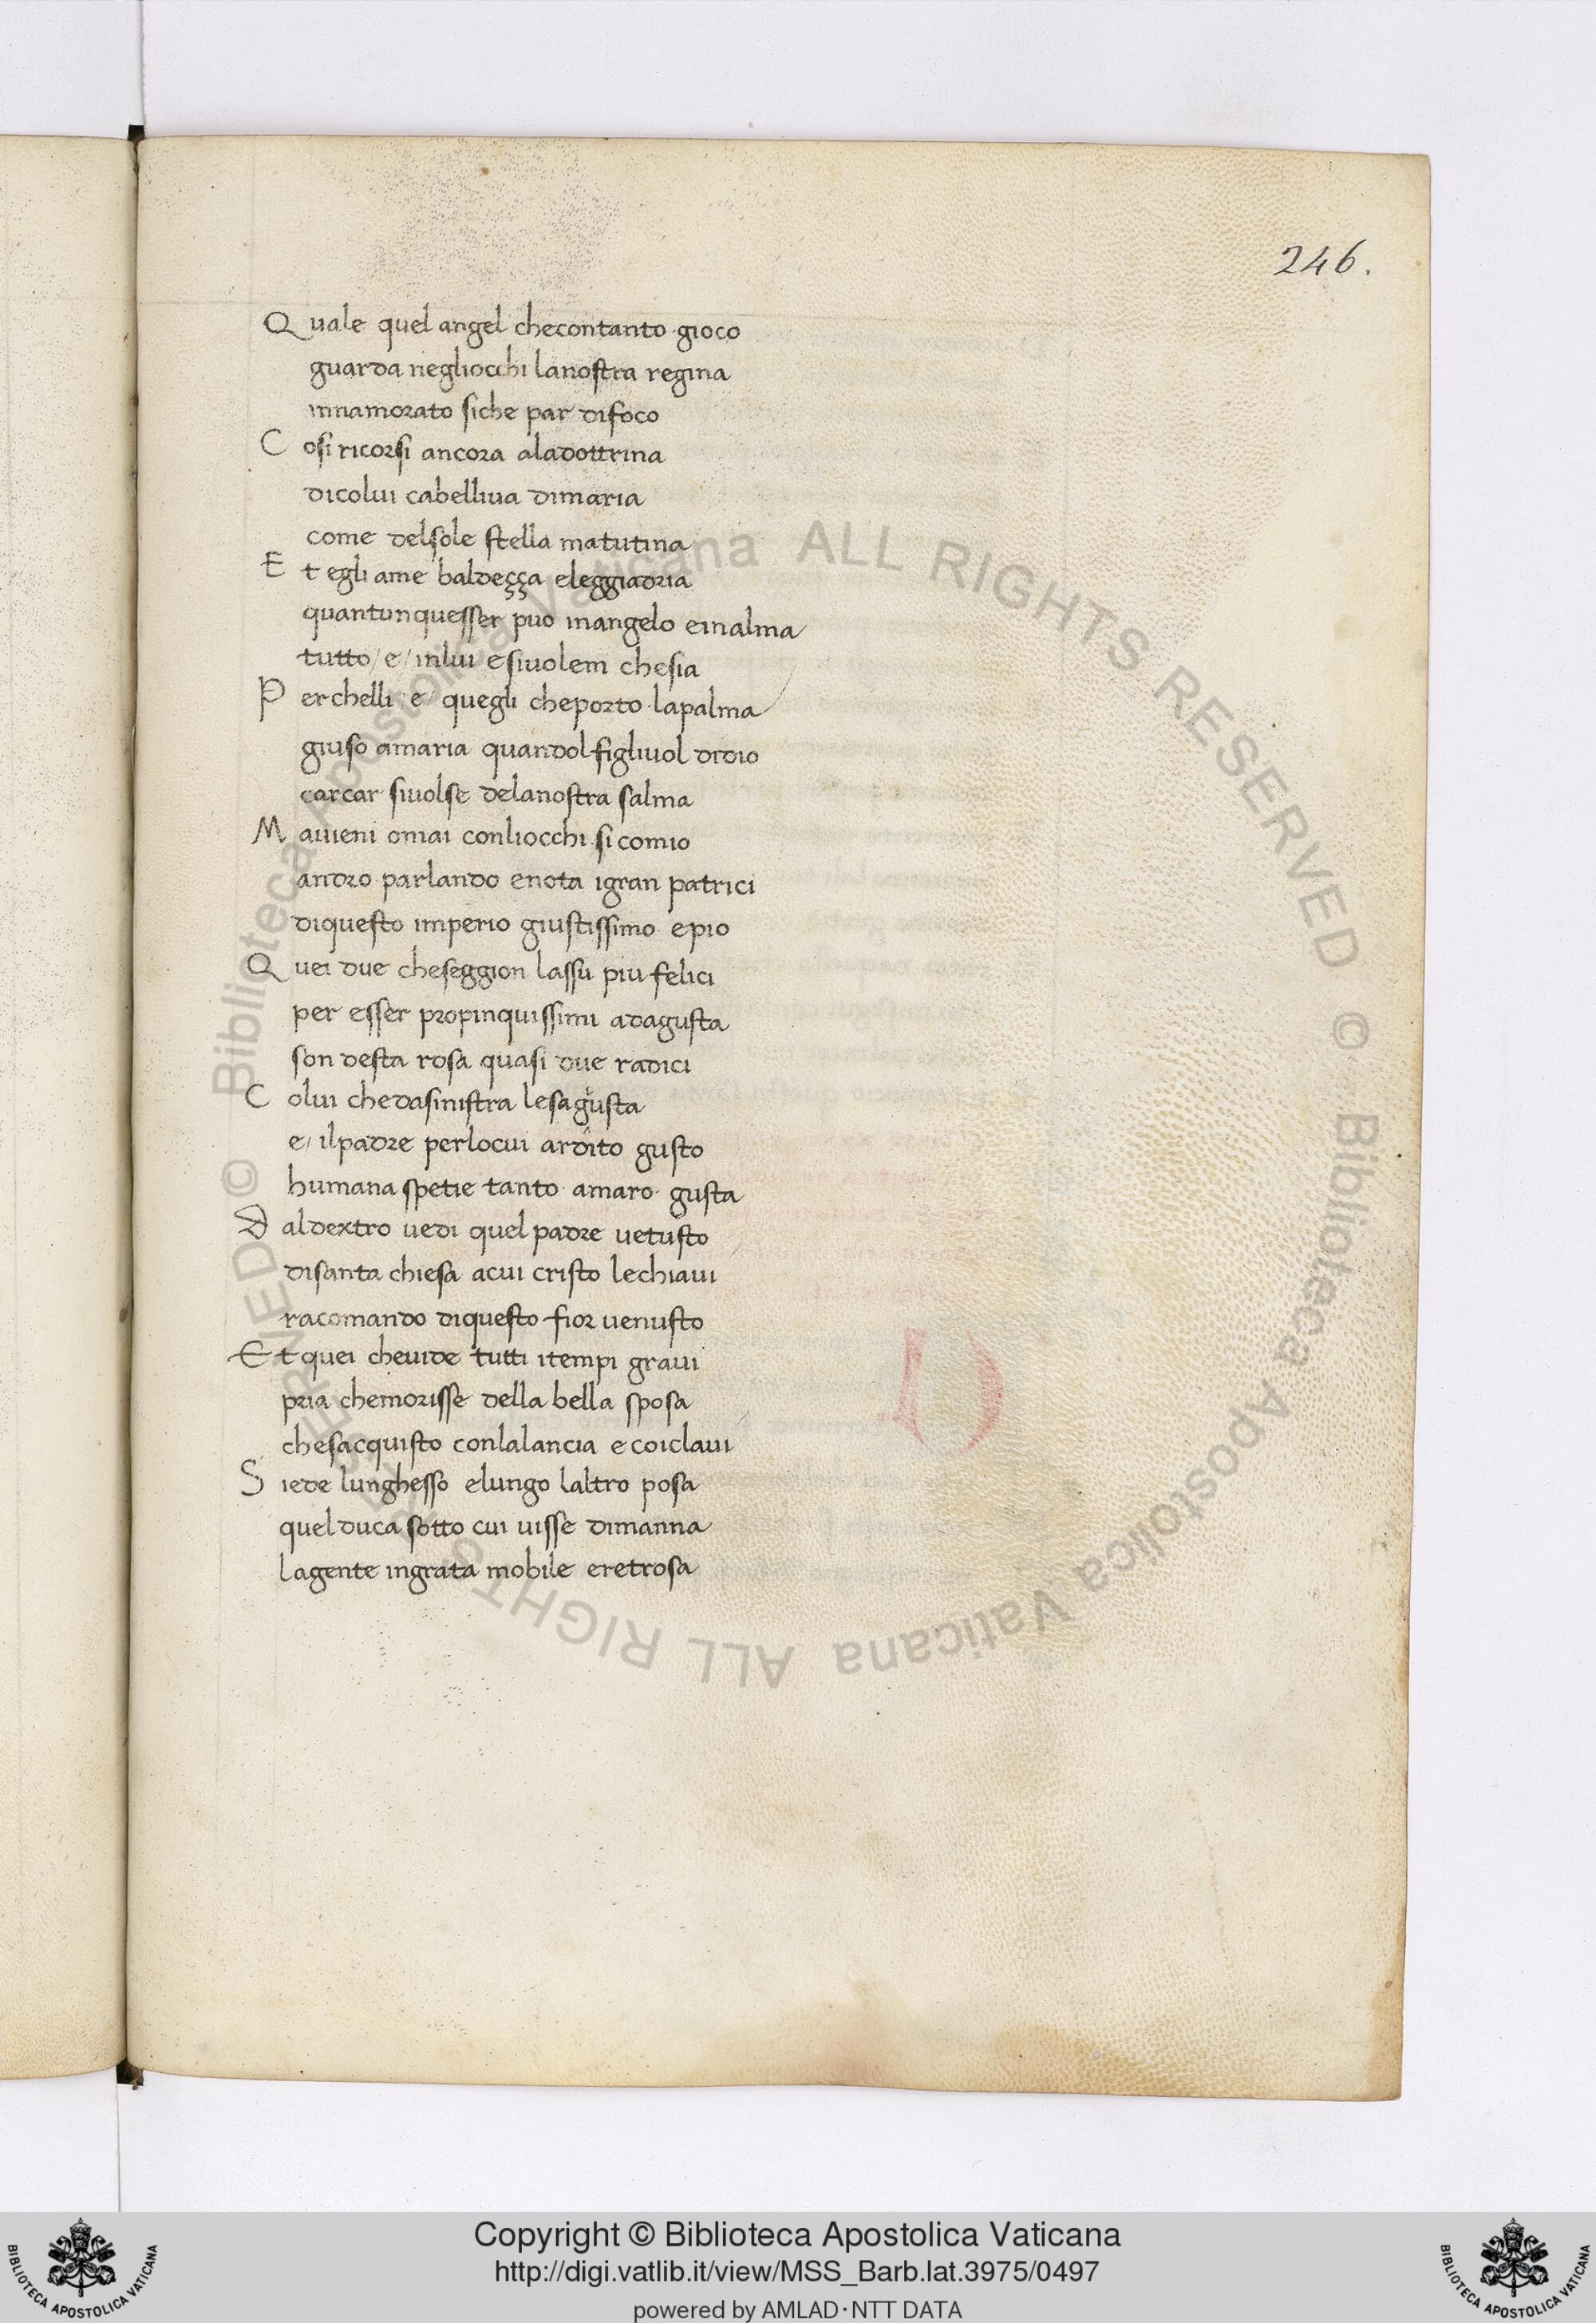 246.
Quale quel angel checontanto gioco
guarda negliocchi lanostra regina
innamorato siche par difoco
Cosi ricorsi ancora aladottrina
dicolui cabelliua dimaria
come delsole stella matutina
Et egli ame baldeçça eleggiadria
quantunquesser puo inangelo einalma
tutto/e/inlui esiuolem chesia
Perchelli/e/quegli cheporto lapalma
giuso amaria quandol figliuol didio
carcar siuolse delanostra salma
Mauieni omai conliocchi si comio
andro parlando enota igran patrici
diquesto imperio giustissimo epio
Quei due cheseggion lassu piu felici
per esser propinquissimi adagusta
son desta rosa quasi due radici
Colui chedasinistra lesagusta
e/ ilpadre perlocui ardito gusto
humana spetie tanto amaro gusta
Daldextro uedi quel padre uetusto
disanta chiesa acui cristo lechiaui
racomando diquesto fior uenusto
Et quei cheuide tutti itempi graui
pria chemorisse della bella sposa
chesacquisto conlalancia ecoiclaui
Siede lunghesso elungo laltro posa
quel duca sotto cui uisse dimanna
lagente ingrata mobile eretrosa
© Biblioteca Apostolica Vaticana ALL RIGHTS RESERVED © Biblioteca Apostolica Vaticana ALL RIGHTS RESERVED
Copyright © Biblioteca Apostolica Vaticana
http://digi.vatlib.it/view/MSS_Barb.lat.3975/0497
powered by AMLAD·NTT DATA
BIBLIOTECA APOSTOLICA VATICANA
BIBLIOTECA APOSTOLICA VATICANA